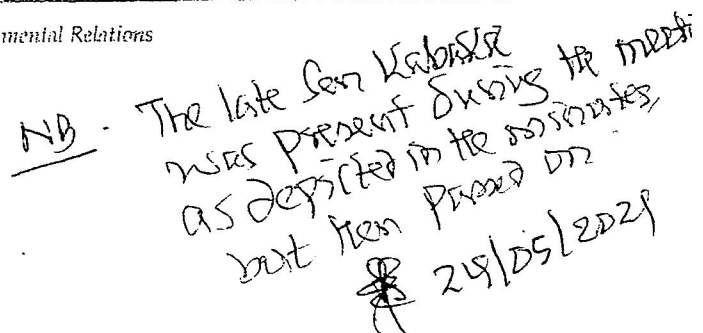 mental Relations
NB. The late Sen Kabaka
was present during the meeti
as depicted in the minutes,
but then passed on
24/05/2021